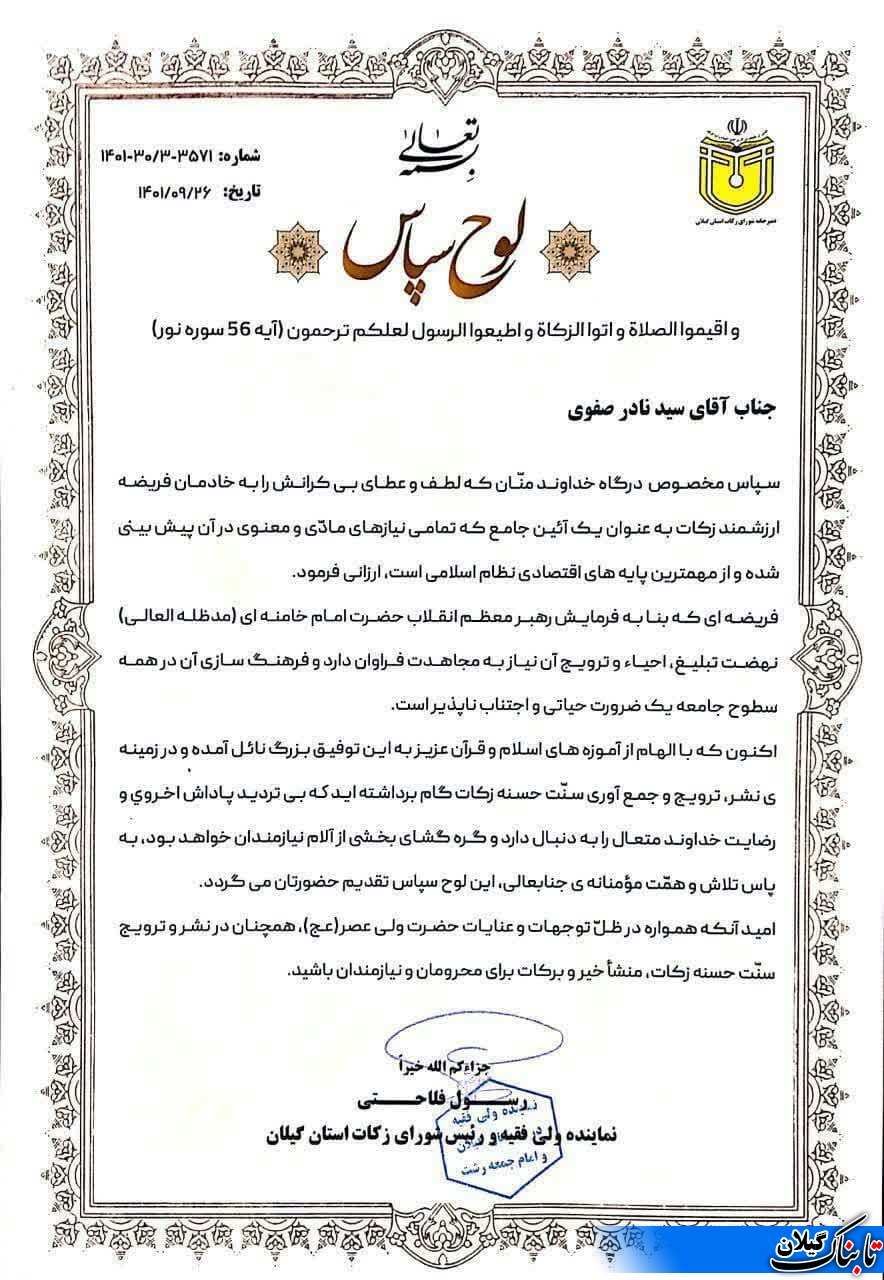 بسمه تعالی
شماره: ۱۴۰۱-۳۰/۳-۳۵۷۱
تاریخ: ۱۴۰۱/۰۹/۲۶
دبیرخانه شورای زکات استان گیلان
لوح سپاس
و اقیموا الصلاة و اتوا الزکاة و اطیعوا الرسول لعلکم ترحمون (آیه 56 سوره نور)
جناب آقای سید نادر صفوی
سپاس مخصوص درگاه خداوند منّان که لطف و عطای بی کرانش را به خادمان فریضه
ارزشمند زکات به عنوان یک آئین جامع که تمامی نیازهای مادّی و معنوی در آن پیش بینی
شده و از مهمترین پایه های اقتصادی نظام اسلامی است، ارزانی فرمود.
فریضه ای که بنا به فرمایش رهبر معظم انقلاب حضرت امام خامنه ای (مدظله العالی)
نهضت تبلیغ، احیاء و ترویج آن نیاز به مجاهدت فراوان دارد و فرهنگ سازی آن در همه
سطوح جامعه یک ضرورت حیاتی و اجتناب ناپذیر است.
اکنون که با الهام از آموزه های اسلام و قرآن عزیز به این توفیق بزرگ نائل آمده و در زمینه
ی نشر، ترویج و جمع آوری سنّت حسنه زکات گام برداشته اید که بی تردید پاداش اخروي و
رضایت خداوند متعال را به دنبال دارد و گره گشای بخشی از آلام نیازمندان خواهد بود، به
پاس تلاش و همّت مؤمنانه ی جنابعالی، این لوح سپاس تقدیم حضورتان می گردد.
امید آنکه همواره در ظلّ توجهات و عنایات حضرت ولی عصر(عج)، همچنان در نشر و ترویج
سنّت حسنه زکات، منشأ خیر و برکات برای محرومان و نیازمندان باشید.
جزاءکم الله خیراً
رسول فلاحتی
نماینده ولی فقیه و رئیس شورای زکات استان گیلان
نماینده ولی فقیه
در گیلان
و امام جمعه رشت
تابناک گیلان